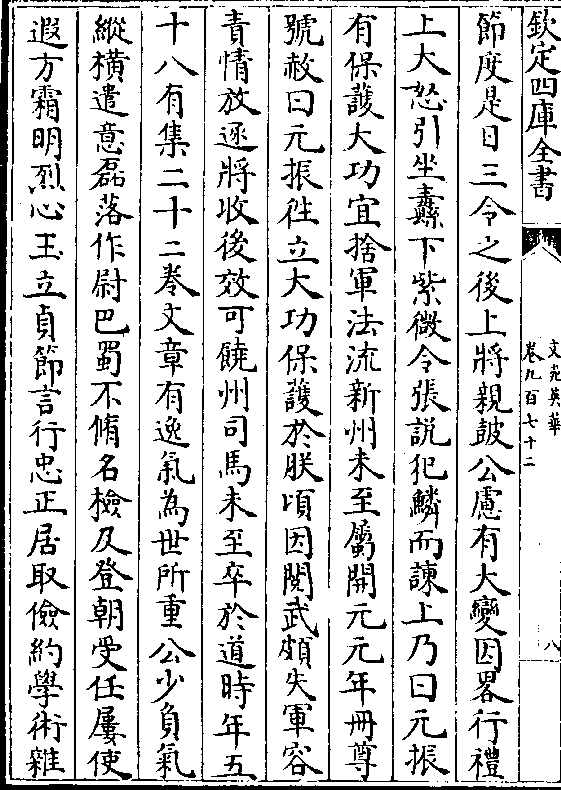 欽定四庫全書
文苑英華
卷九百七十二
八
節度是日三令之後上將親鼓公慮有大變因畧行禮
上大怒引坐纛下紫微令張説犯鱗而諫上乃曰元振
有保䕶大功宜捨軍法流新州未至屬開元元年冊尊
號赦曰元振徃立大功保䕶於朕頃因閱武頗失軍容
責情放逐將收後效可饒州司馬未至卒於道時年五
十八有集二十二卷文章有逸氣為世所重公少負氣
縱橫遣意磊落作尉巴蜀不脩名檢及登朝受任屢使
遐方霜明烈心玉立貞節言行忠正居取儉約學術雜